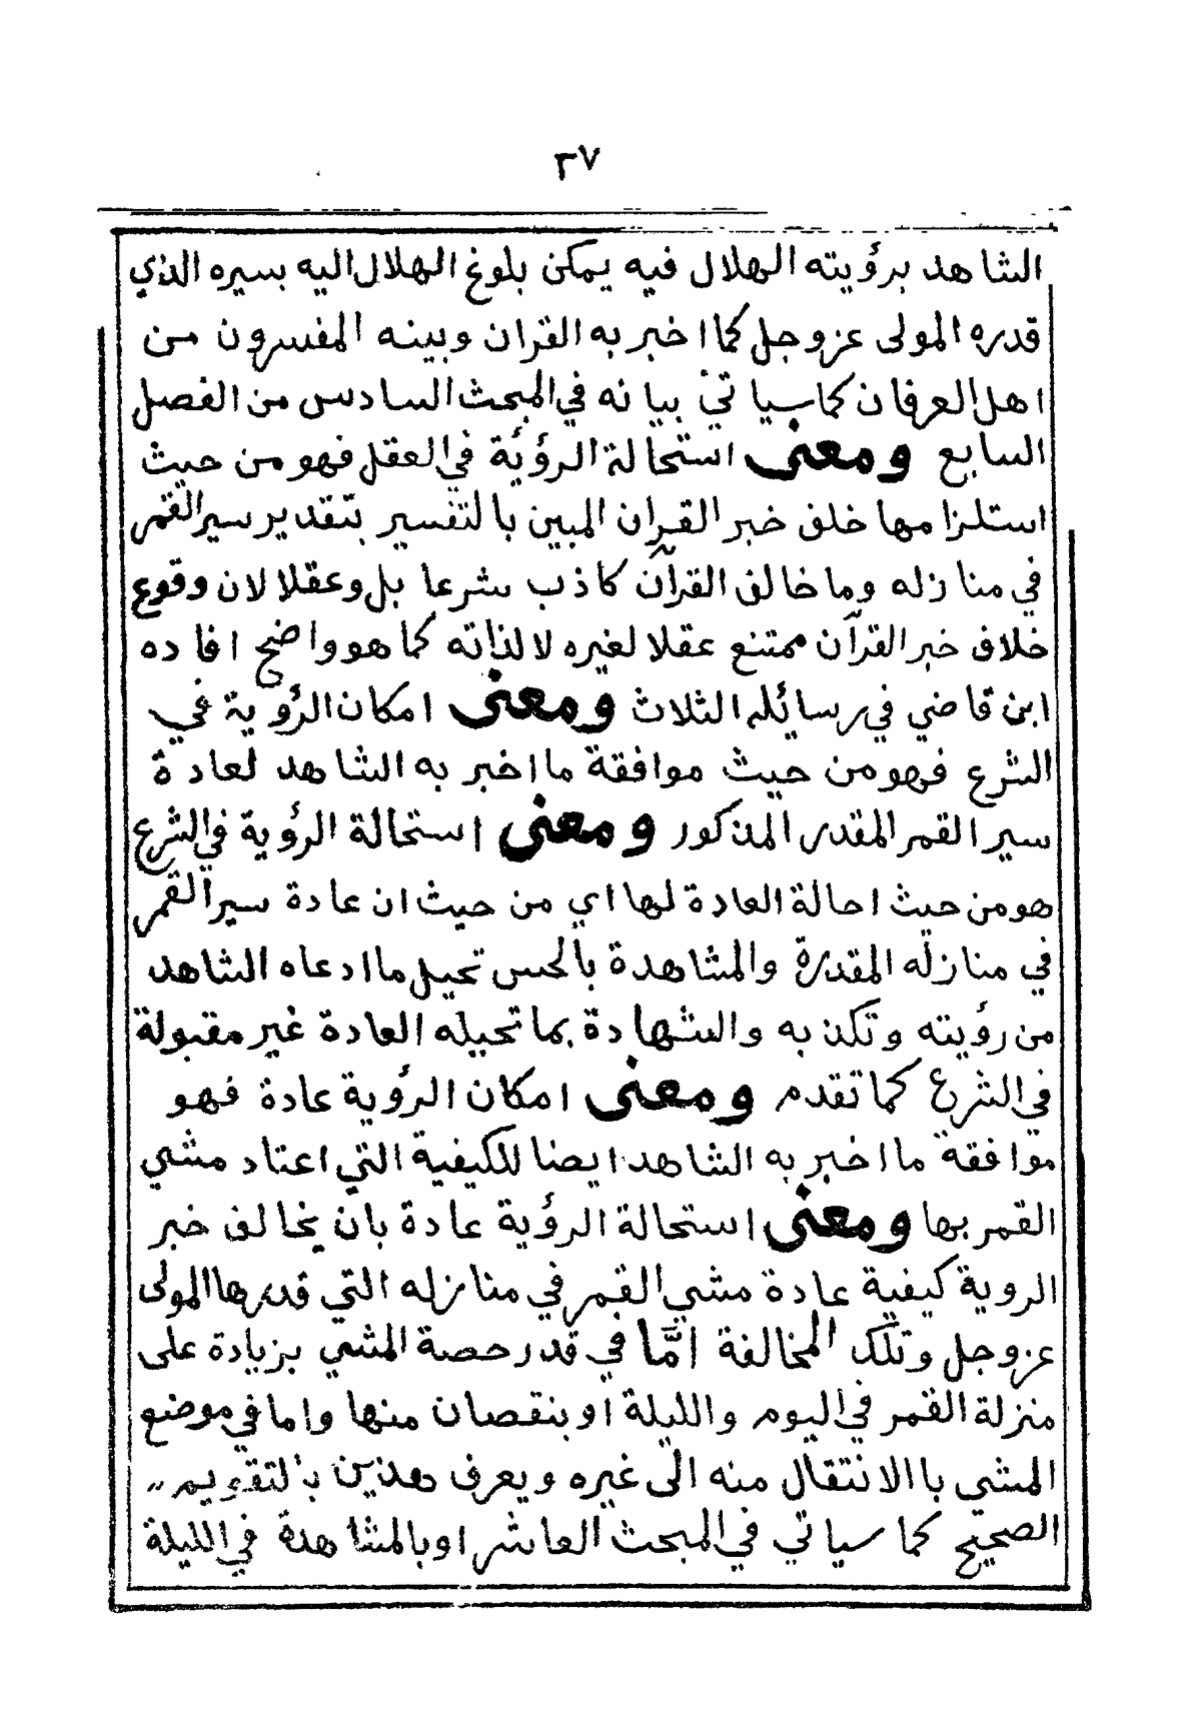 ٣٧
الشاهد برؤيته الهلال فيه يمكن بلوغ الهلال اليه بسيره الذي
قدره المولى عز وجل كما اخبر به القران وبينه المفسرون من
اهل العرفان كما سياتي بيانه في المبحث السادس من الفصل
السابع ومعنى استحالة الرؤية في العقل فهو من حيث
استلزامها خلف خبر القران المبين بالتفسير بتقدير سير القمر
في منازله وما خالف القرآن كاذب شرعا بل وعقلا لان وقوع
خلاف خبر القرآن ممتنع عقلا لغيره لا لذاته كما هو واضح افاده
ابن قاضي في رسائله الثلاث ومعنى امكان الرؤية في
الشرع فهو من حيث موافقة ما اخبر به الشاهد لعادة
سير القمر المقدر المذكور ومعنى استحالة الرؤية في الشرع
هو من حيث احالة العادة لها اي من حيث ان عادة سير القمر
في منازله المقدرة والمشاهدة بالحس تحيل ما ادعاه الشاهد
من رؤيته وتكذبه والشهادة بما تحيله العادة غير مقبولة
في الشرع كما تقدم ومعنى امكان الرؤية عادة فهو
موافقة ما اخبر به الشاهد ايضا للكيفية التي اعتاد مشي
القمر بها ومعنى استحالة الرؤية عادة بان يخالف خبر
الروية كيفية عادة مشي القمر في منازله التي قدرها المولى
عز وجل وتلك المخالفة امّا في قدر حصة المشي بزيادة على
منزلة القمر في اليوم والليلة او بنقصان منها واما في موضع
المشي باالانتقال منه الى غيره ويعرف هذين بالتقويم ,,
الصحيح كما سياتي في المبحث العاشر او بالمشاهدة في الليلة